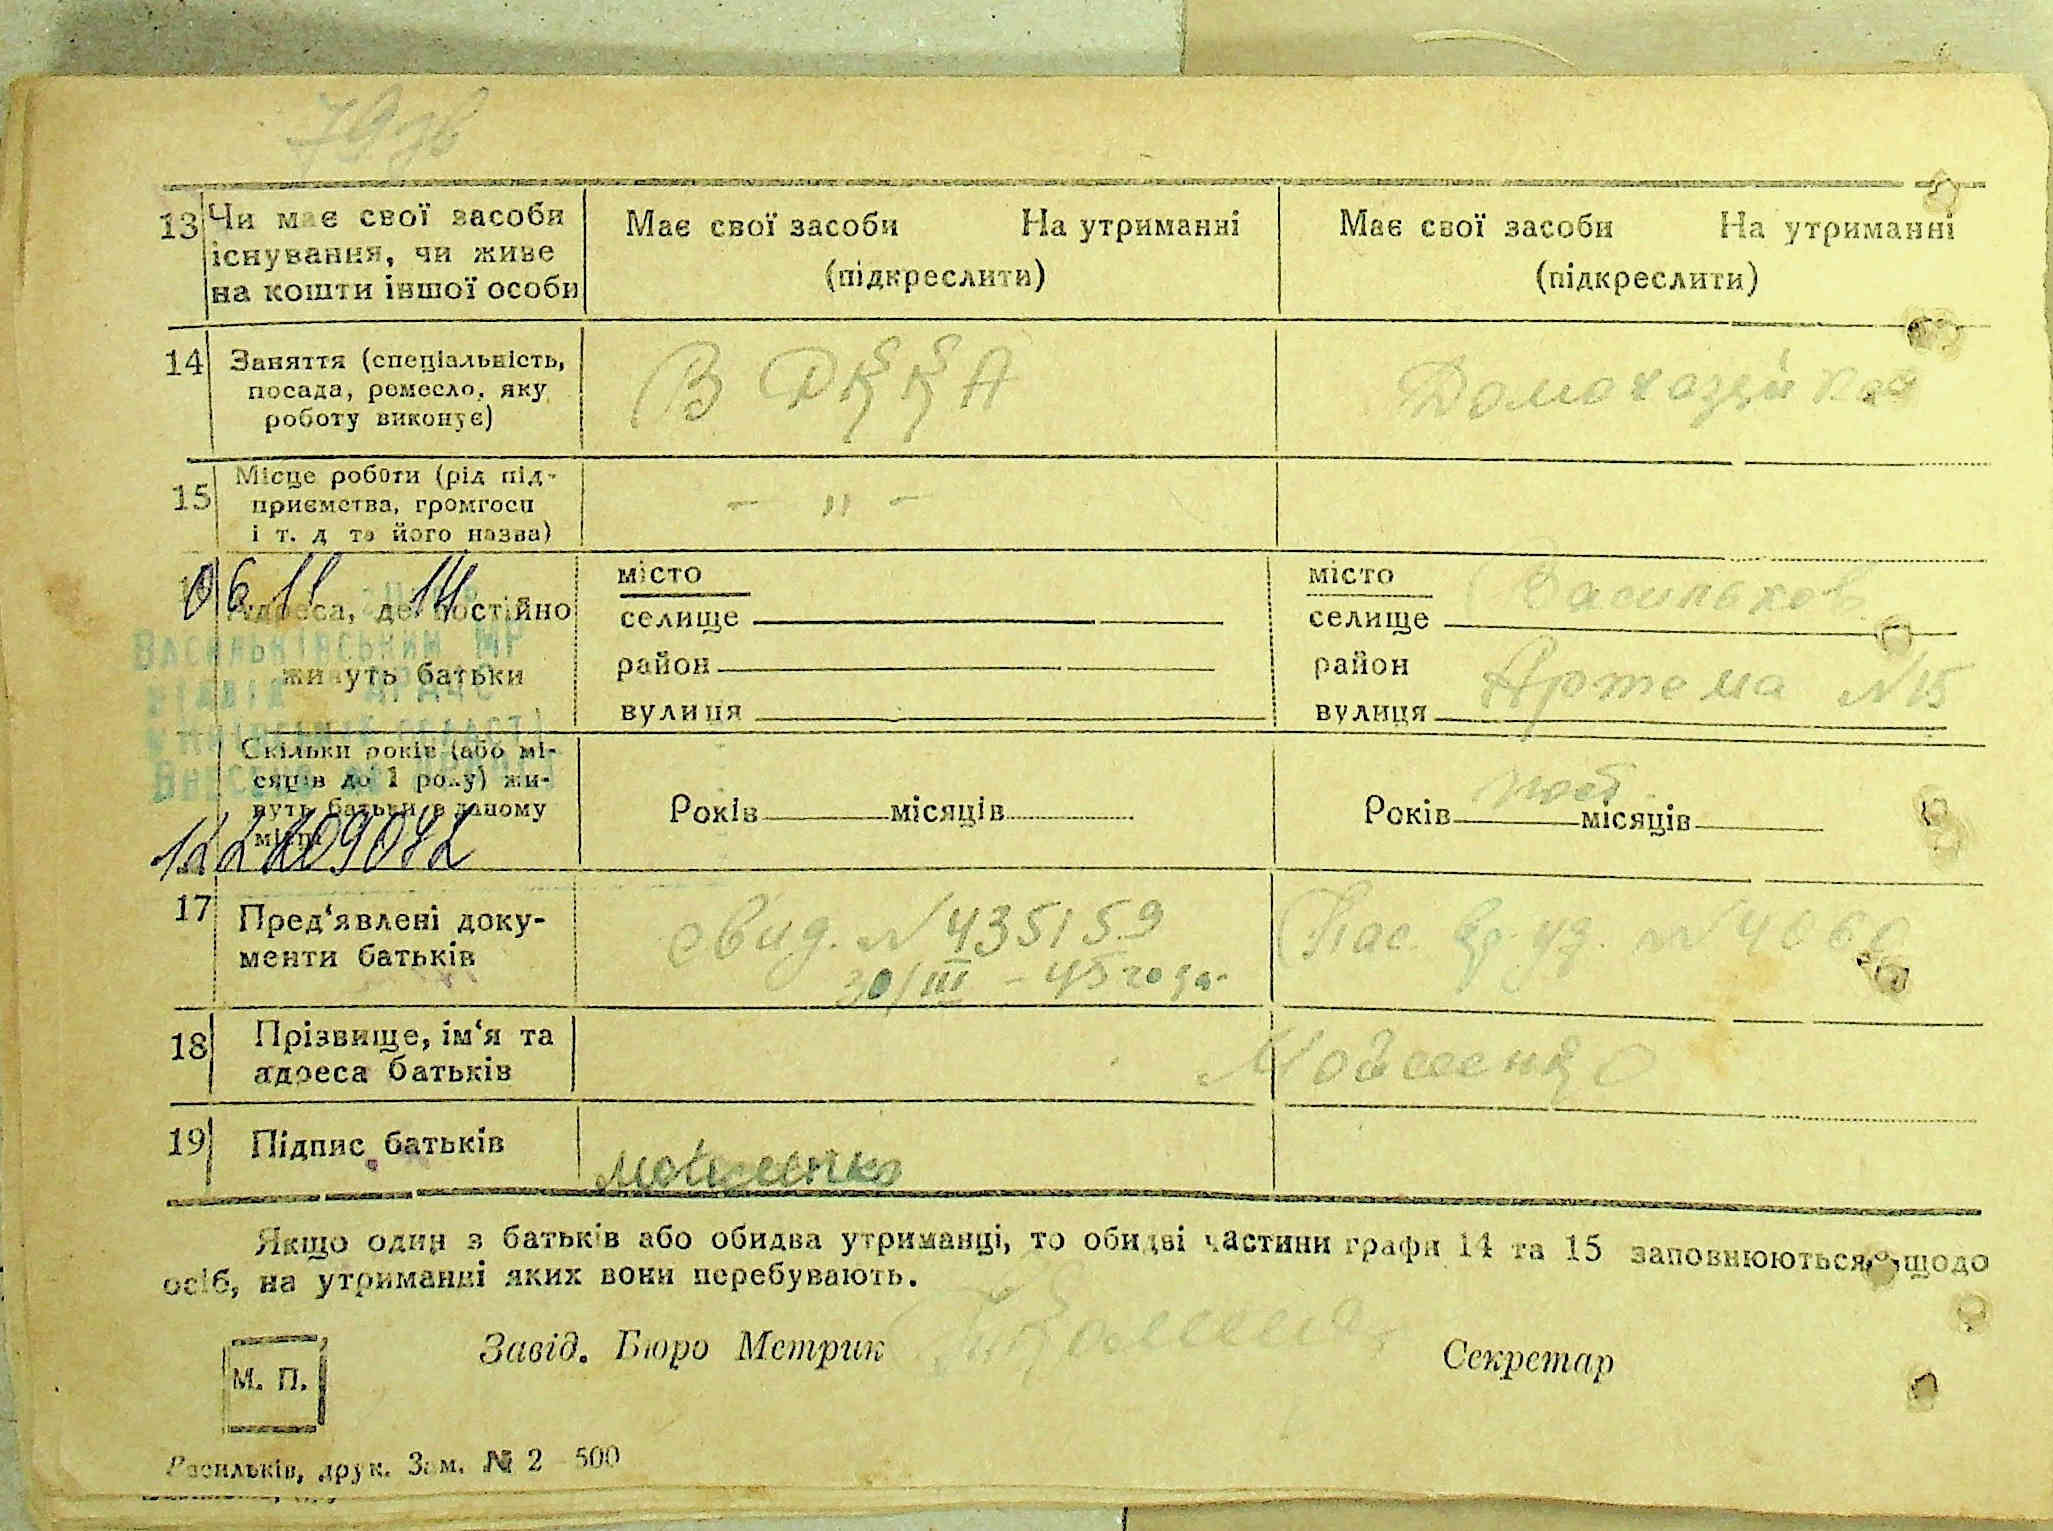 79 зв
13 Чи має свої засоби існування, чи живе на кошти іншої особи
Має свої засоби На утриманні
(підкреслити)
Має свої засоби На утриманні
(підкреслити)
14 Заняття (спеціальність,
посада, ремесло, яку
роботу виконує)
В РККА
Домохазяйка
15 Місце роботи (рід під-
приємства, громгосп
і т. д та його назва)
- " -
06 11 14
Адреса, де постійно
живуть батьки
місто
селище
район
вулиця
місто Васильков
селище
район
вулиця Артема № 15
Васильківський МР
відділ ДРАЦС
Київській області
Внесено
Скільки років (або мі-
сяців до 1 року) жи-
вуть батьки в даному
місці
Років місяців
Років пост. місяців
17 Пред'явлені доку-
менти батьків
свид. № 435159
30/III - 45 года.
Пас.
18 Прізвище, ім'я та
адреса батьків
Мойсенко
19 Підпис батьків
Мойсенко
Якщо один з батьків або обидва утриманці, то обидві частини графи 14 та 15 заповнюються щодо
осіб, на утриманні яких вони перебувають.
М. П.
Завід. Бюро Метрик
Секретар
Васильків, друк. Зам. № 2 500